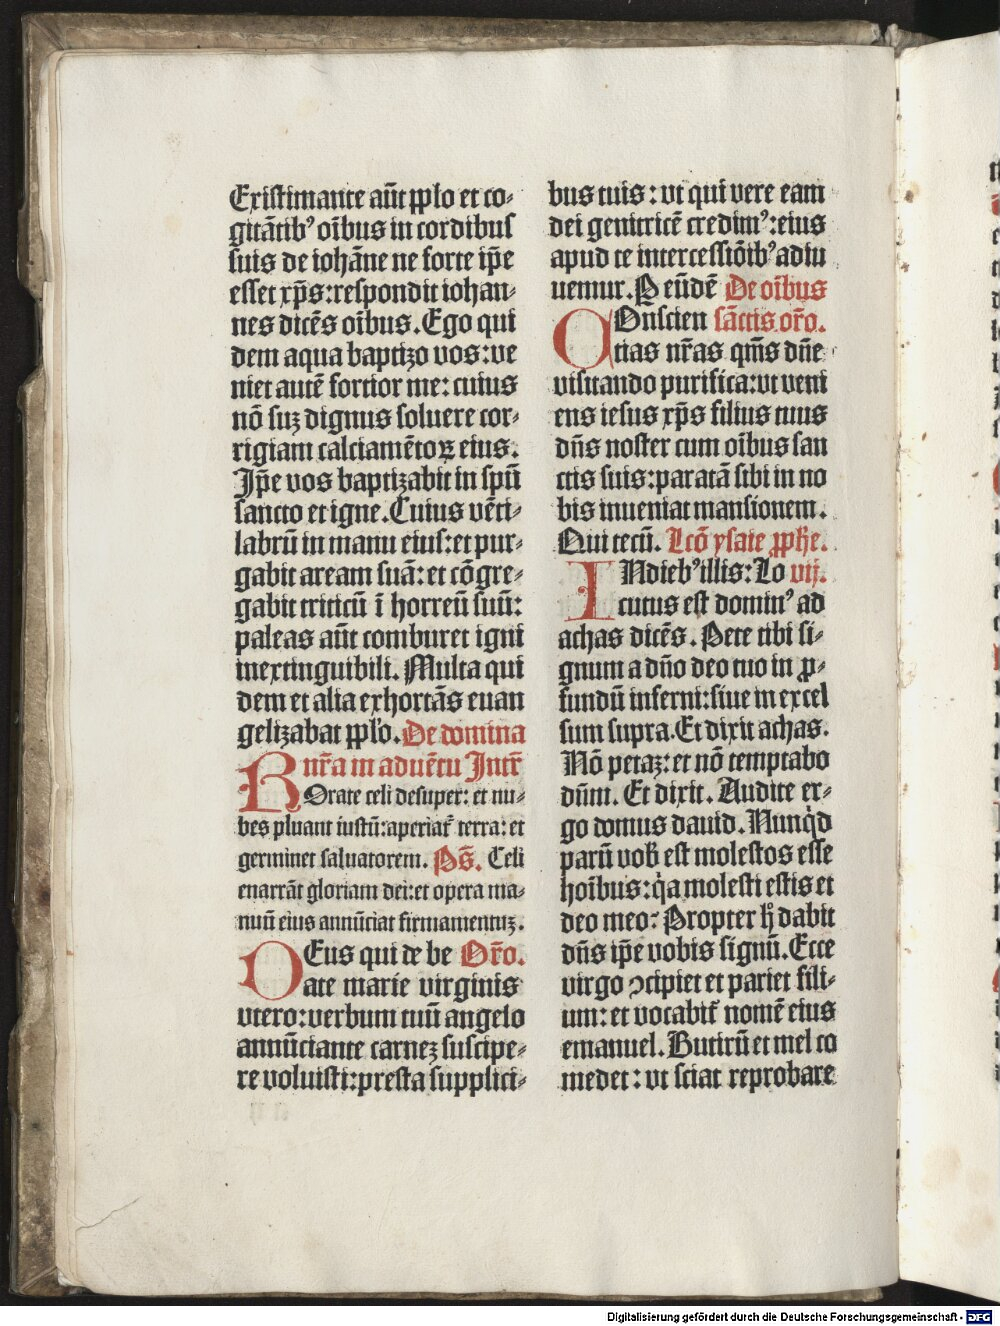 Existimante aūt pplo et co-
gitātibꝰ oībus in cordibus
suis de iohāne ne forte ip̄e
esset xp̄s: respondit iohan-
nes dicēs oībus. Ego qui
dem aqua baptizo vos: ve
niet autē fortior me: cuius
nō suꝫ dignus soluere cor-
rigiam calciamētoꝝ eius.
Ip̄e vos baptizabit in spū
sancto et igne. Cuius vēti-
labrū in manu eius: et pur-
gabit aream suā: et cōgre-
gabit triticū ī horreū suū:
paleas aūt comburet igni
inextinguibili. Multa qui
dem et alia exhortās euan
gelizabat pplo. De domina
nr̄a in aduētu Intr̄
ROrate celi desuper: et nu-
bes pluant iustū: aperiat̄ terra: et
germinet saluatorem. Ps̄. Celi
enarrāt gloriam dei: et opera ma-
nuū eius annūciat firmamentuꝫ.
DEus qui de be Or̄o.
ate marie virginis
vtero: verbum tuū angelo
annūciante carneꝫ suscipe-
re voluisti: presta supplici-
bus tuis: vt qui vere eam
dei genitricē credimꝰ: eius
apud te intercessiōibꝰ adiu
uemur. P eūdē De oībus
COn̄scien sāctis or̄o.
tias nr̄as qm̄s dn̄e
visitando purifica: vt veni
ens iesus xp̄s filius tuus
dn̄s noster cum oībus san
ctis suis: paratā sibi in no
bis inueniat mansionem.
Qui tecū. Lcō ysaie ꝓphe.
INdiebꝰ illis: Lo vij.
cutus est dominꝰ ad
achas dicēs. Pete tibi si-
gnum a dn̄o deo tuo in ꝓ-
fundū inferni: siue in excel
sum supra. Et dixit achas.
Nō petaꝫ: et nō temptabo
dn̄m. Et dixit. Audite er-
go domus dauid. Nunqd
parū vob̄ est molestos esse
hoībus: qa molesti estis et
deo meo: Propter h̄ dabit
dn̄s ip̄e vobis signū. Ecce
virgo ꝯcipiet et pariet fili-
um: et vocabit̄ nomē eius
emanuel. Butirū et mel co
medet: vt sciat reprobare
Digitalisierung gefördert durch die Deutsche Forschungsgemeinschaft - DFG